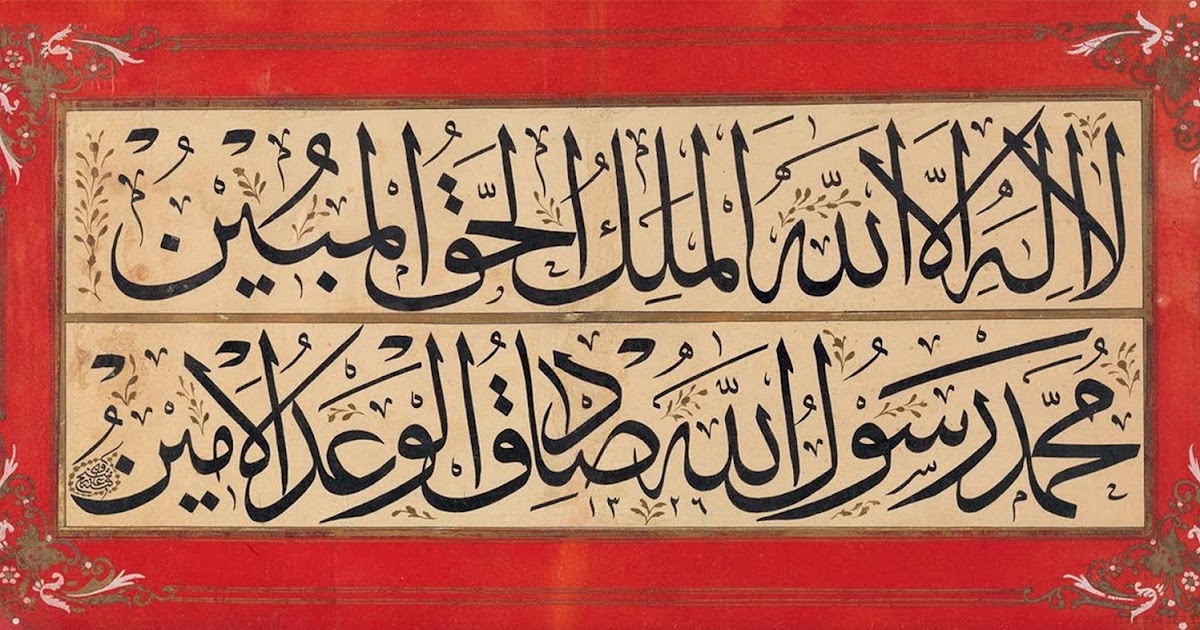 لَا اِلٰهَ اِلَّا اللّٰهُ الْمَلِكُ الْحَقُّ الْمُبِيْنُ
مُحَمَّدٌ رَسُوْلُ اللّٰهِ صَادِقُ الْوَعْدِ الْاَمِيْنُ
١٣٢٦